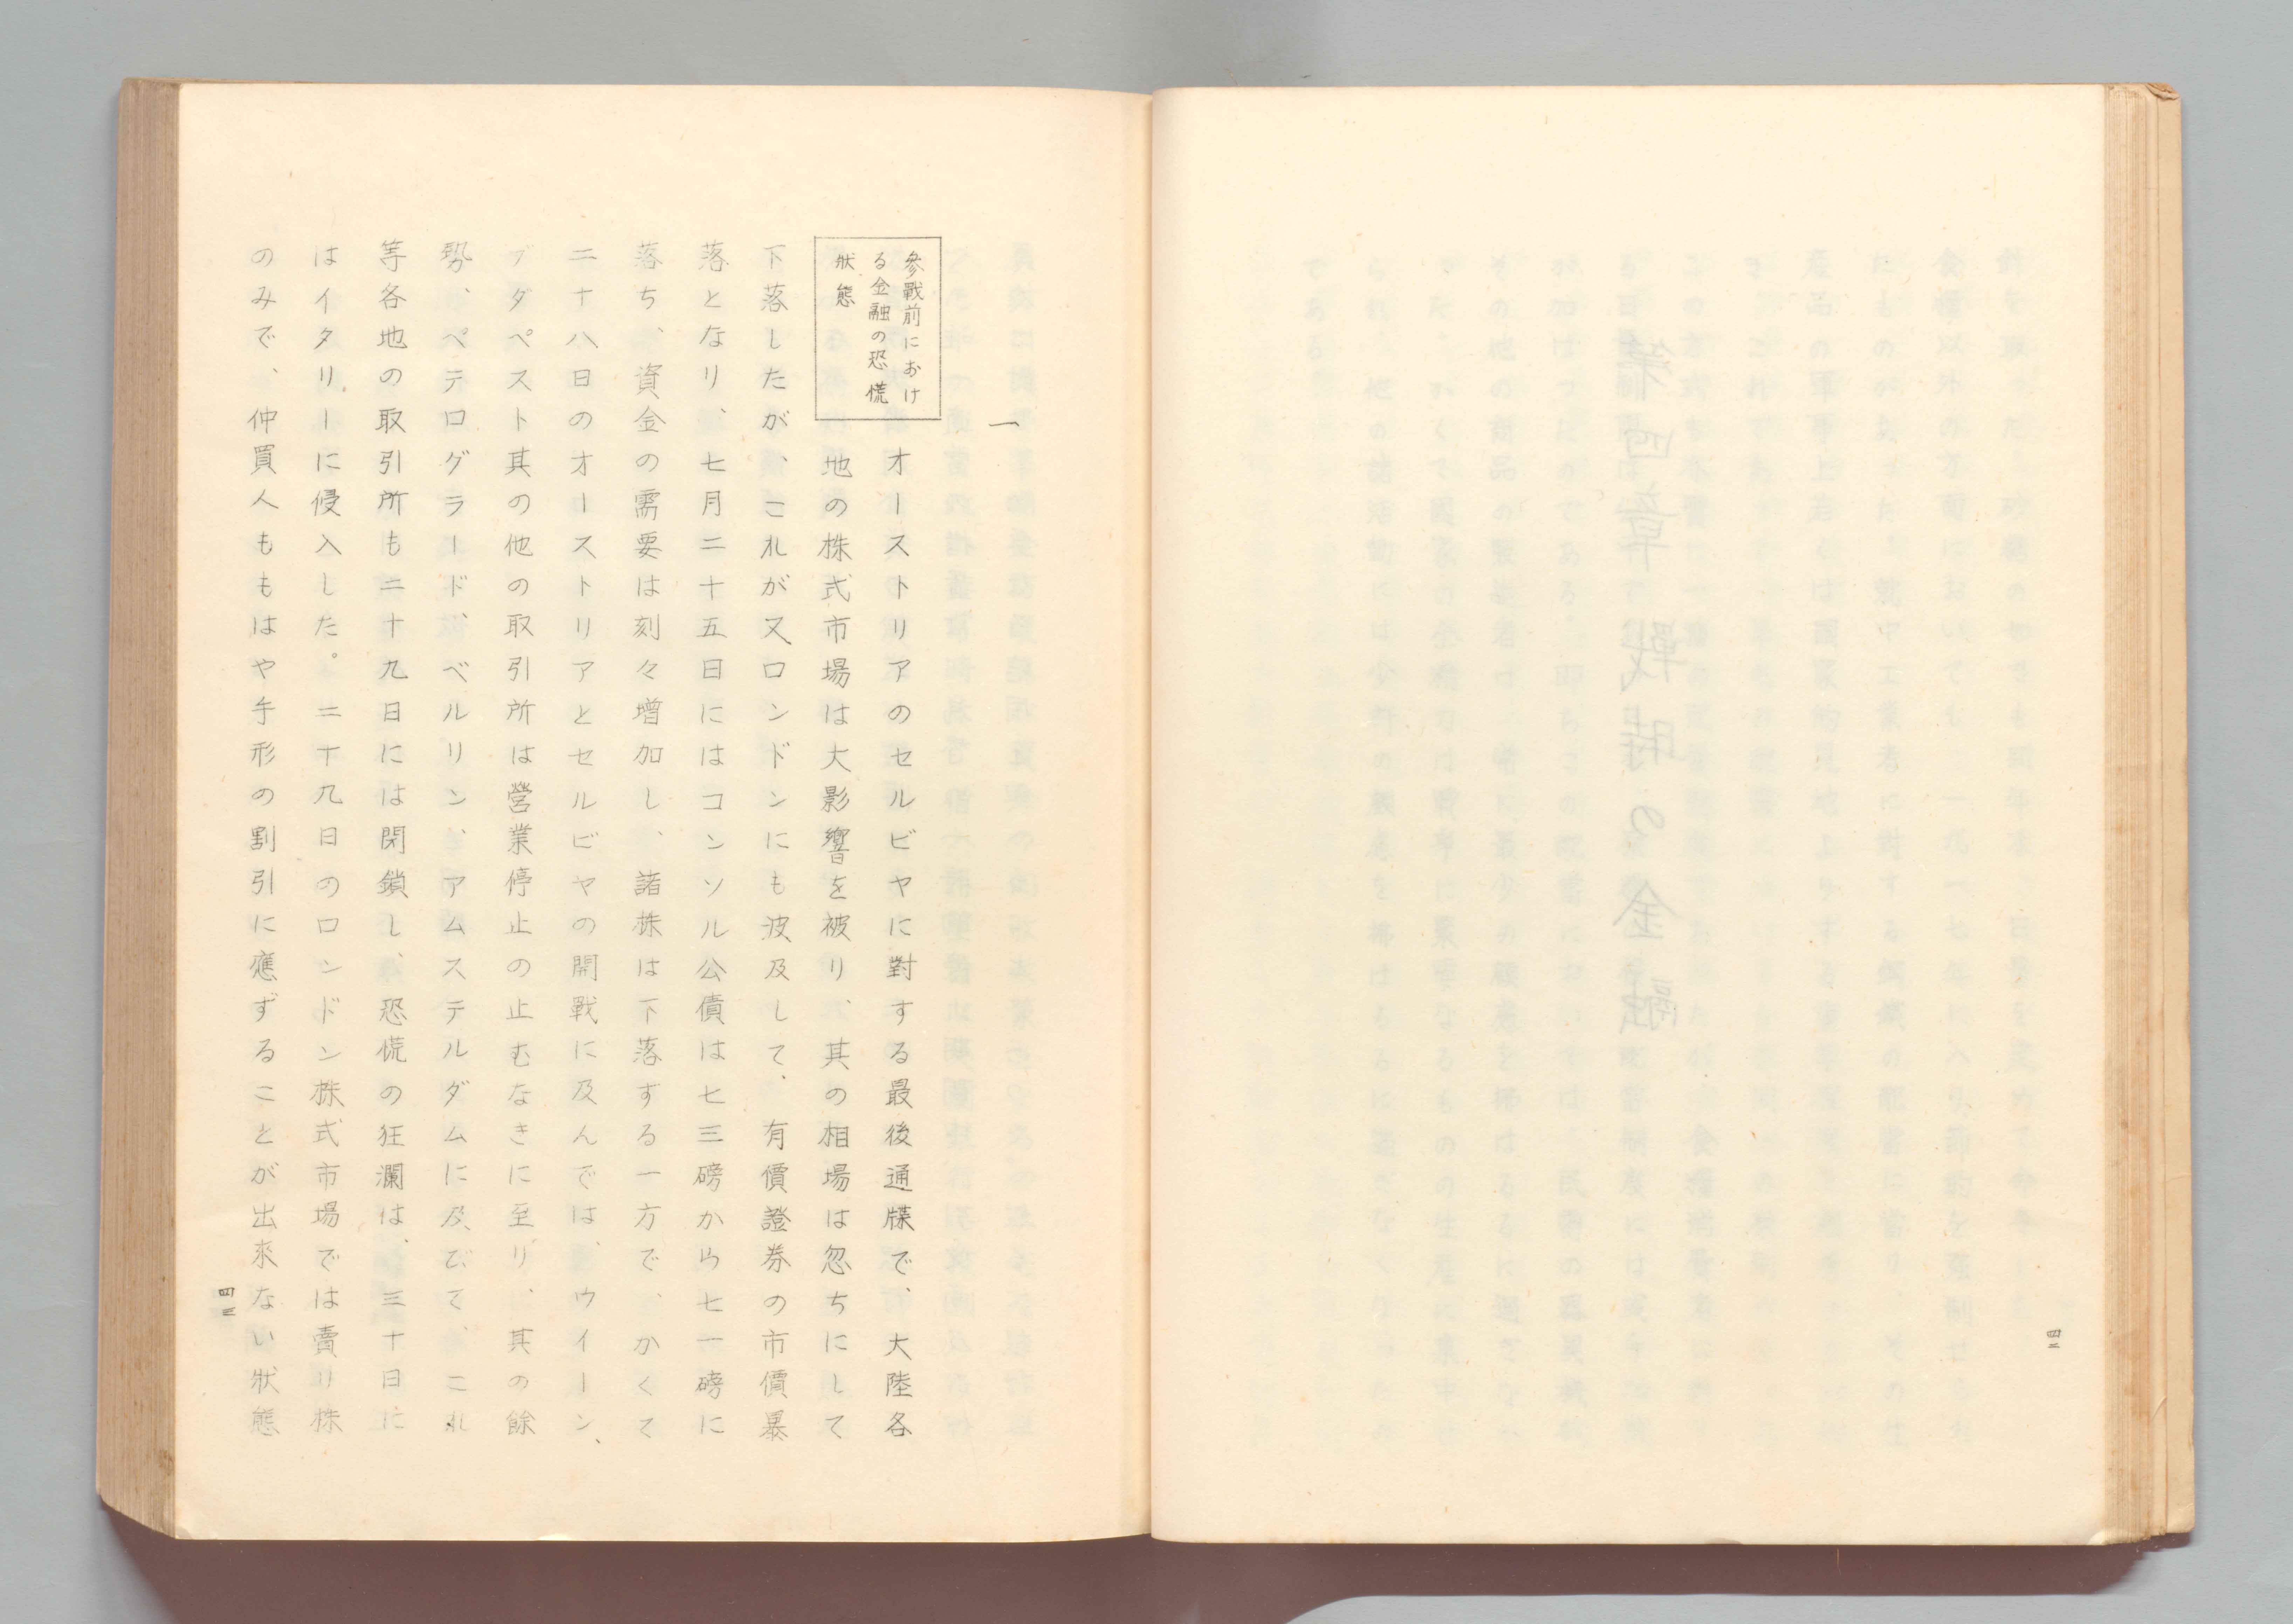 四二
一
参戰前におけ
る金融の恐慌
狀態
オーストリアのセルビヤに對する最後通牒で、大陸各
地の株式市場は大影響を被り、其の相場は忽ちにして
下落したが、これが又ロンドンにも波及して、有價證券の市價暴
落となり、七月二十五日にはコンソル公債は七三磅から七一磅に
落ち、資金の需要は刻々増加し、諸株は下落する一方で、かくて
二十八日のオーストリアとセルビヤの開戰に及んでは、ウイーン、
ブダペスト其の他の取引所は營業停止の止むなきに至り、其の餘
勢、ペテログラード、ベルリン、アムステルダムに及びて、これ
等各地の取引所も二十九日には閉鎖し、恐慌の狂瀾は、三十日に
はイタリーに侵入した。二十九日のロンドン株式市場では賣り株
のみで、仲買人ももはや手形の割引に應ずることが出來ない狀態
四三